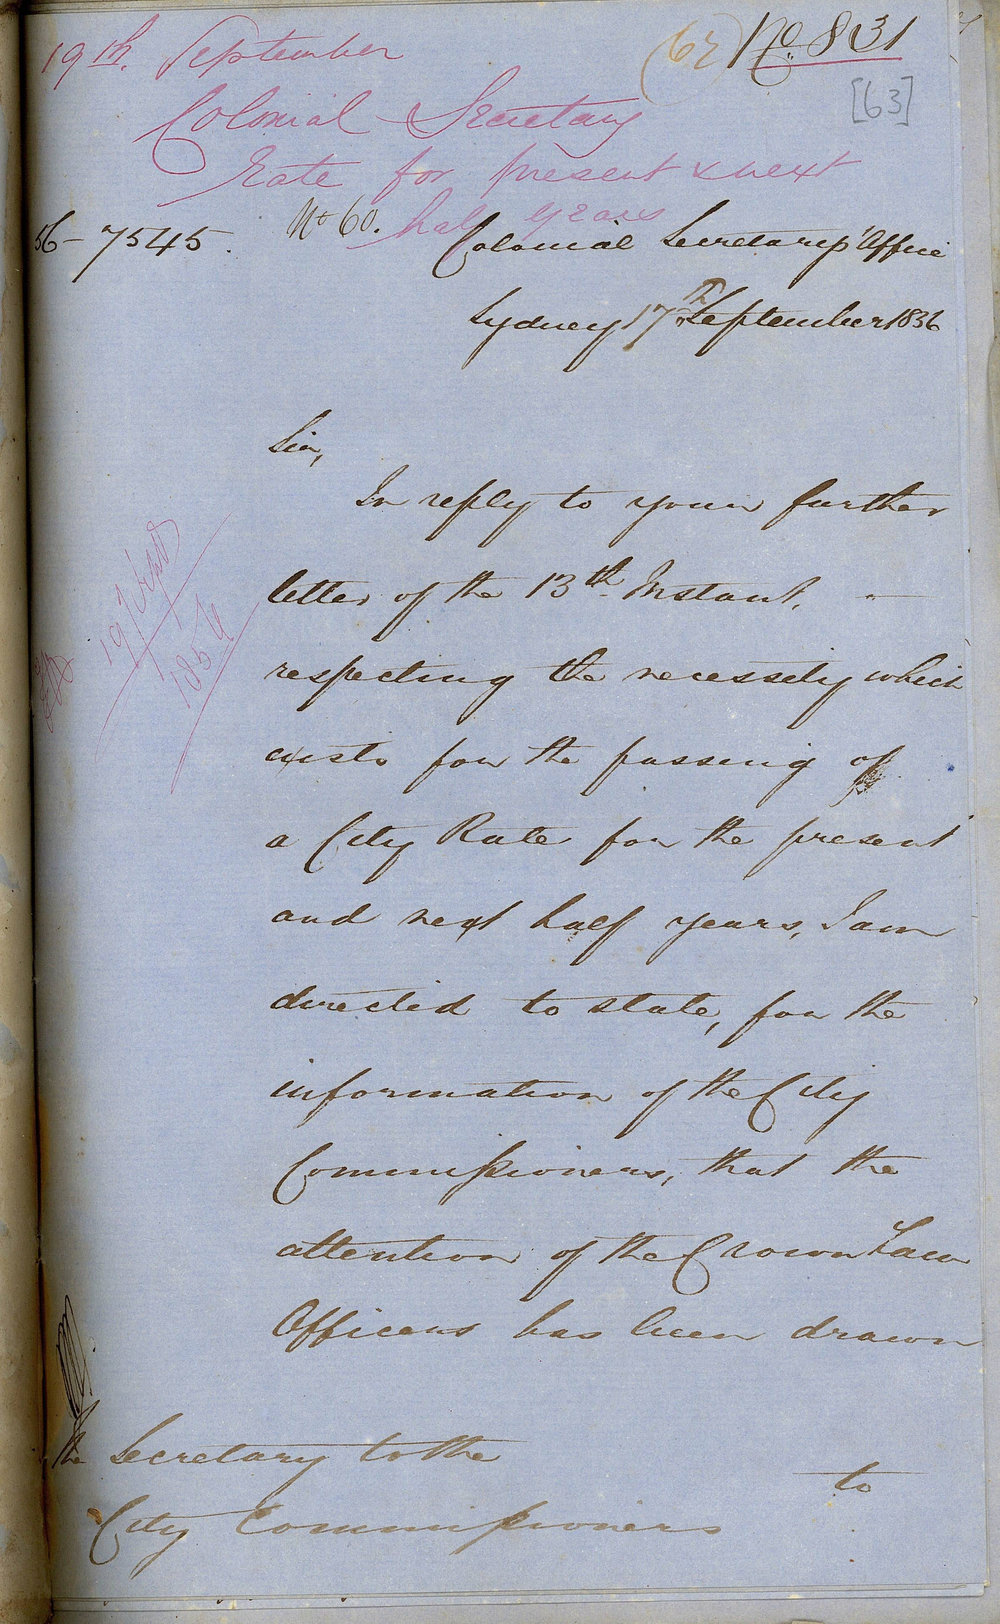 19th. September
(62) No. 831
[63]
Colonial Secretary
Rate for present & next
half years
56-7545. No 60.
Colonial Secretary's Office
Sydney 17th September 1856
Sir,
In reply to your further
letter of the 13th Instant, -
respecting the necessity which
exists for the passing of
a City Rate for the present
and next half years, I am
directed to state, for the
information of the City
Commissioners, that the
attention of the Crown Law
Officers has been drawn
to
The Secretary to the
City Commissioners
19 Sept
1856